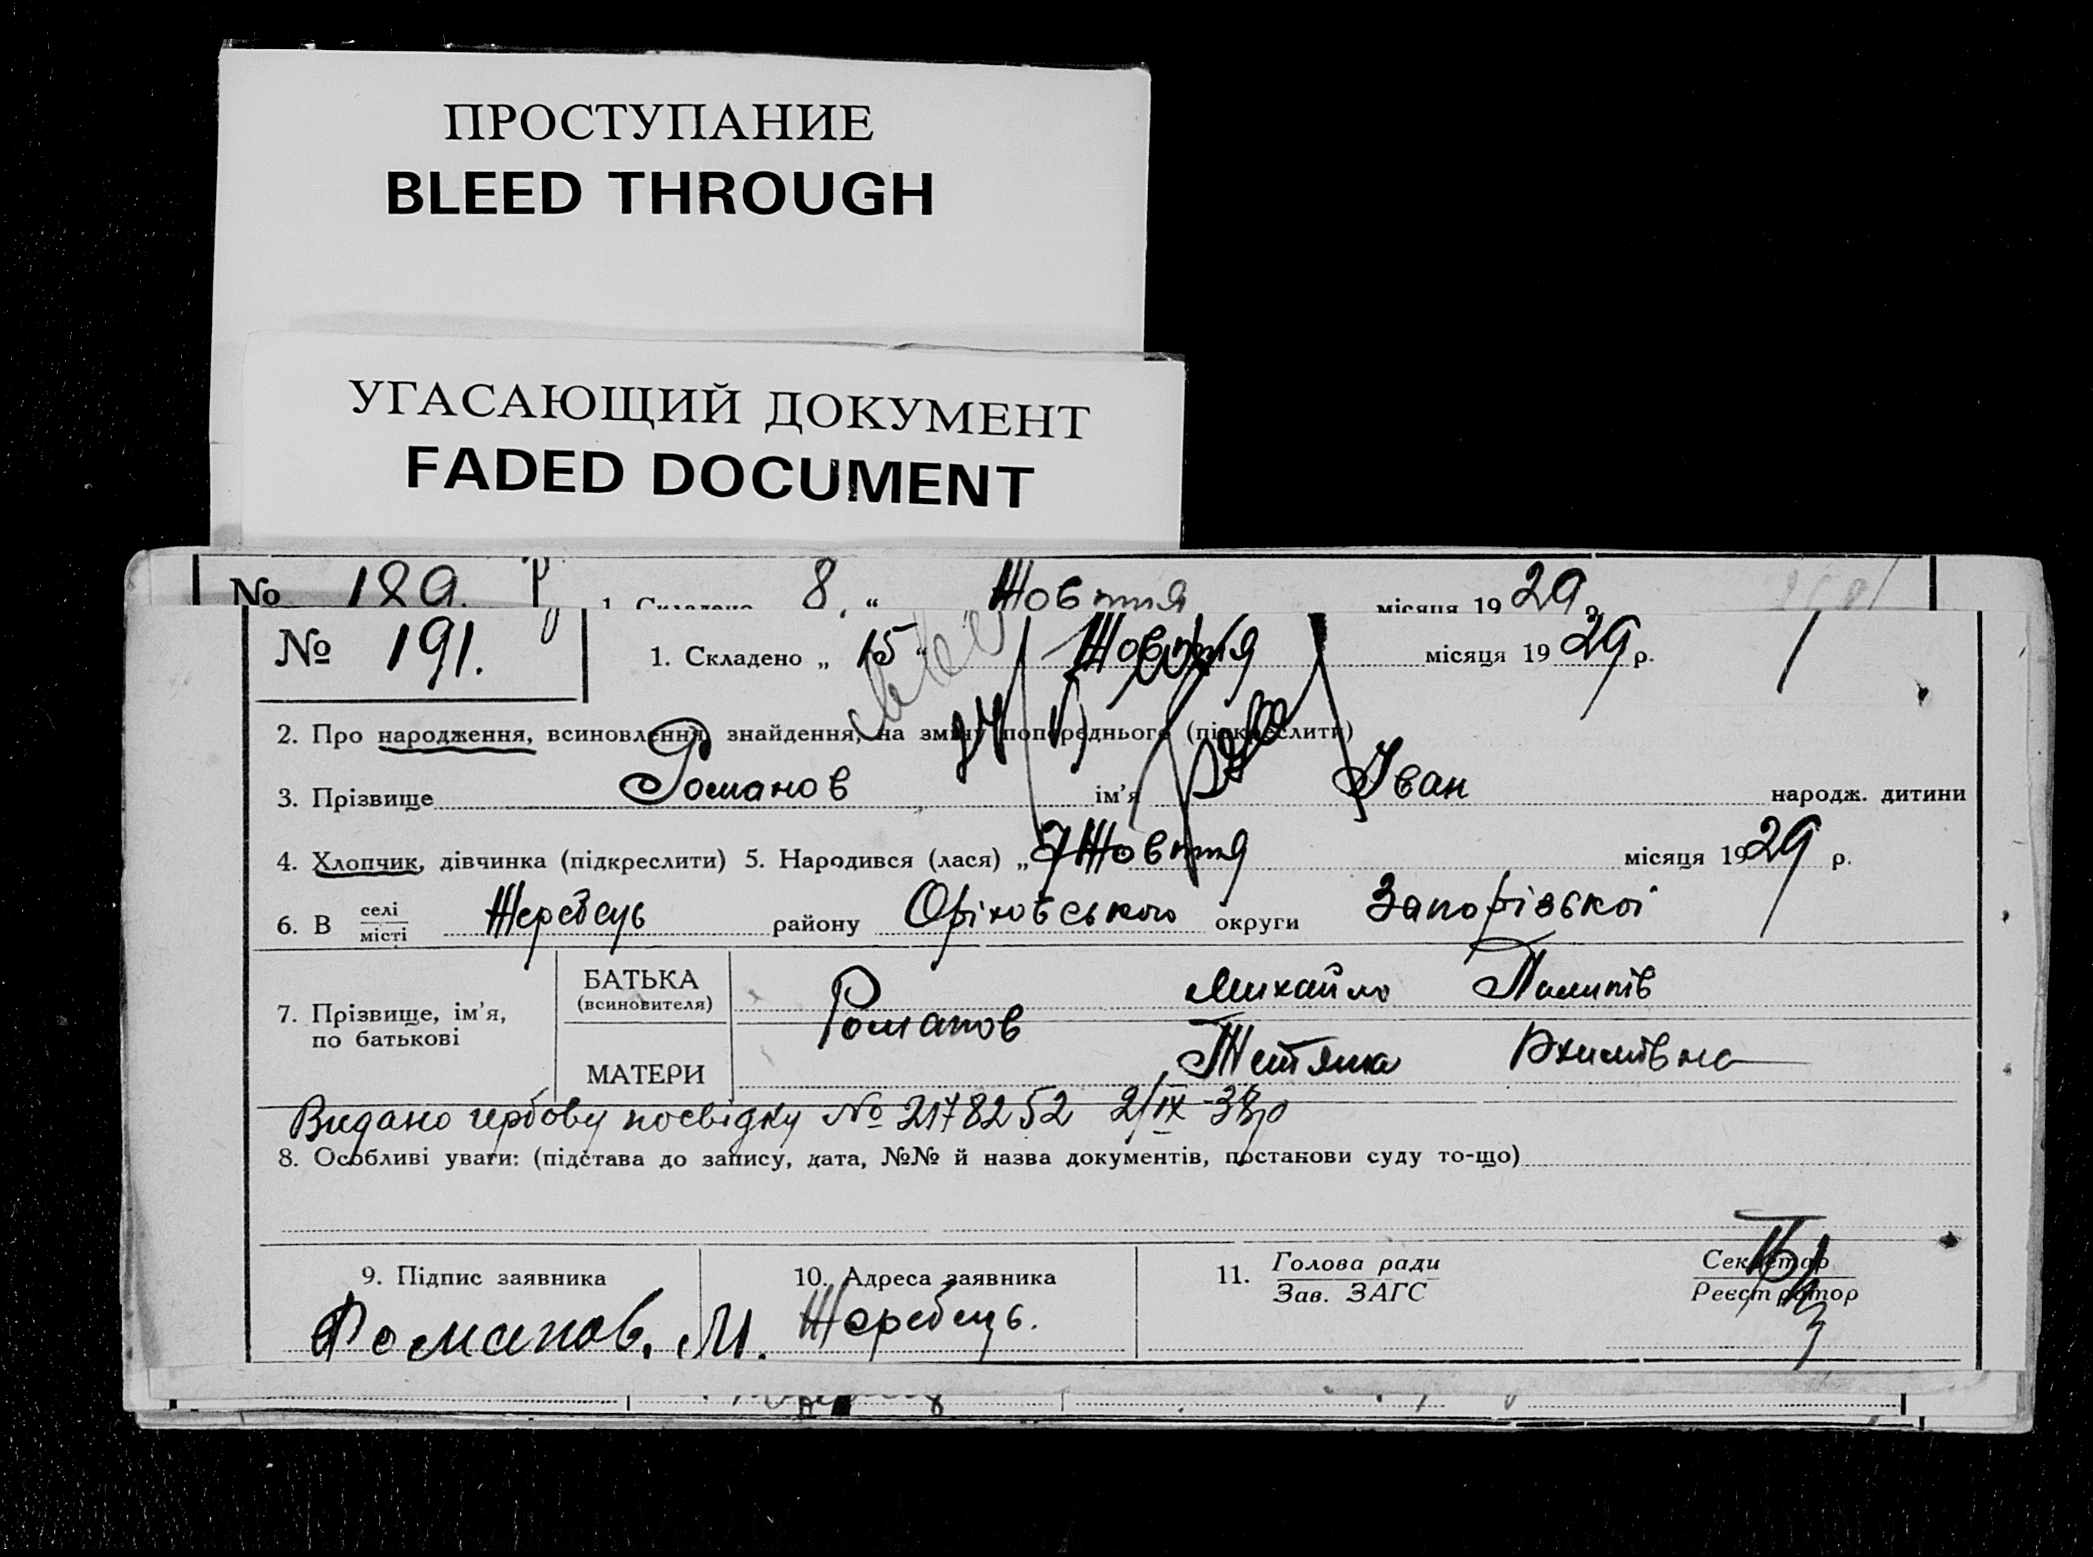 ПРОСТУПАНИЕ
BLEED THROUGH
УГАСАЮЩИЙ ДОКУМЕНТ
FADED DOCUMENT
№ 189. 1. Складено 8. “ Жовтня місяця 1929
№ 191. 1. Складено „ 15 “ Жовтня місяця 1929 р.
2. Про народження, всиновлення, знайдення, на зміну попереднього (підкреслити)
3. Прізвище Романов ім’я Іван народж. дитини
4. Хлопчик, дівчинка (підкреслити) 5. Народився (лася) „ 7 Жовтня місяця 1929 р.
6. В селі/місті Жеребець району Оріховського округи Запорізької
7. Прізвище, ім’я, по батькові
БАТЬКА (всиновителя) Романов Михайло
МАТЕРИ Тетяна
Видано гербову посвідку № 2178252 2/IX-38р
8. Особливі уваги: (підстава до запису, дата, №№ й назва документів, постанови суду то-що)
9. Підпис заявника 10. Адреса заявника 11. Голова ради Секретар
Зав. ЗАГС Реєстратор
Романов. М. Жеребець.